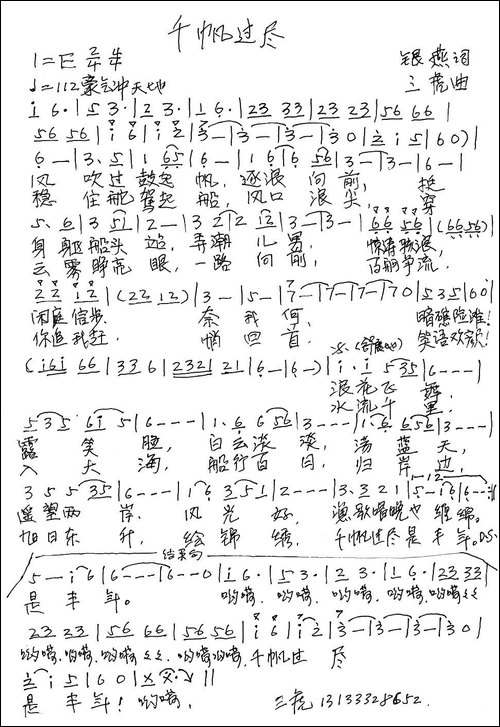 千帆过尽
1=E 2/4 4/4 银燕词
♩=112 豪气冲天地 三虎曲
i 6· | 5 3· | 2 3· | 1 6· | 23 33 | 23 23 | 56 66 |
56 56 | i 6 | i 2 | 3 — | 3 — | 3 — | 3 0 | 2 i 5 | 6 0 )
6 — | 3· 5 | 1 65 | 6 — | 1 6 | 6 56 | 3 — | 3 — | 6 — |
风 吹过鼓起 帆, 逐浪 向前, 挺
稳 住舵驾起 船, 风口 浪尖, 穿
5· 6 | 3 51 | 2 — | 3 2 | 2 12 | 3 — | 3 — | 66 56 | (66 56) |
身躯船头 迎, 弄潮 儿男. 惊涛骇浪,
云雾睁亮 眼, 一路 向前, 百舸争流.
22 12 | (22 12) | 3 — | 5 — | 7 — | 7 — | 7 — | 7 0 | 5 35 | 6 0 |
闲庭信步. 奈 我 何, 暗礁险滩!
你追我赶. 悄 回 首. 笑语欢颜!
( i6i 66 | 33 6 | 2321 21 | 6 — | 6 — ) | i · i 5 35 | 6 - - - |
浪花飞 舞.
水流千 里.
5 35 6i 5 | 6 - - - | 1· 6 6 56 | 3 - - - | 1· 6 656 | 3 - - - |
露 笑 脸, 白云淡 淡, 湛蓝 天,
入 大 海, 船行百 日, 归岸 边,
3 5 5 35 | 6 - - - | 1· 6 3 51 | 2 - - - | 3· 3 21 | 5 — 1 6 | 6 - - - :||
遥望两 岸. 风 光 好, 渔歌唱晚也缠绵.
旭日东 升, 绘 锦 绣, 千帆过尽是丰年. D.S.
结束句
5 — i 6 | 6 - - - | 6 - - 0 | i 6· | 5 3· | 2 3· | 1 6· | 23 33 |
是 丰 年。 哟嗬. 哟嗬. 哟嗬. 哟嗬. 哟嗬
23 23 | 56 66 | 56 56 | i 6 | i 2 | 3 — | 3 — | 3 — | 3 0 |
哟嗬. 哟嗬. 哟嗬 哟嗬哟嗬. 千帆过 尽
2 i 5 | 6 0 | X X· ||
是 丰年! 哟嗬. 三虎 13133328652.